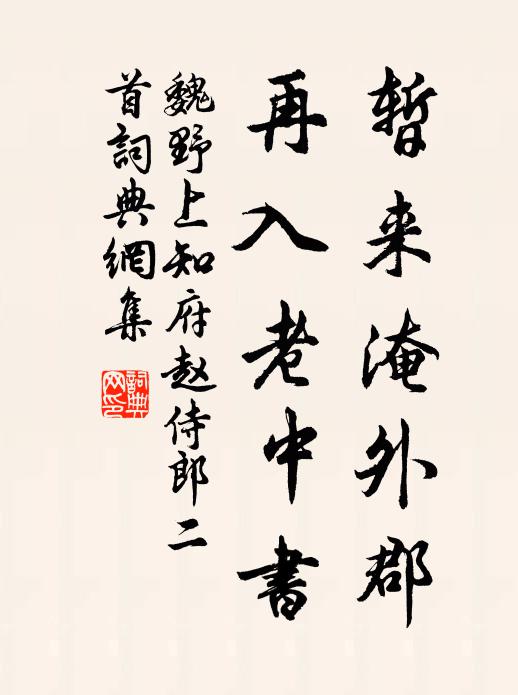 暫来淹外郡
再入老中書
魏野上知府赵侍郎二
首詞典網集
詞典網印